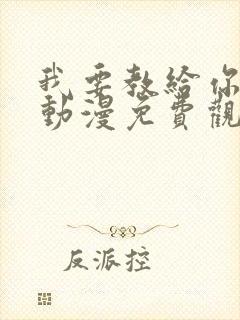 我要教給你
動漫免費觀
反派控